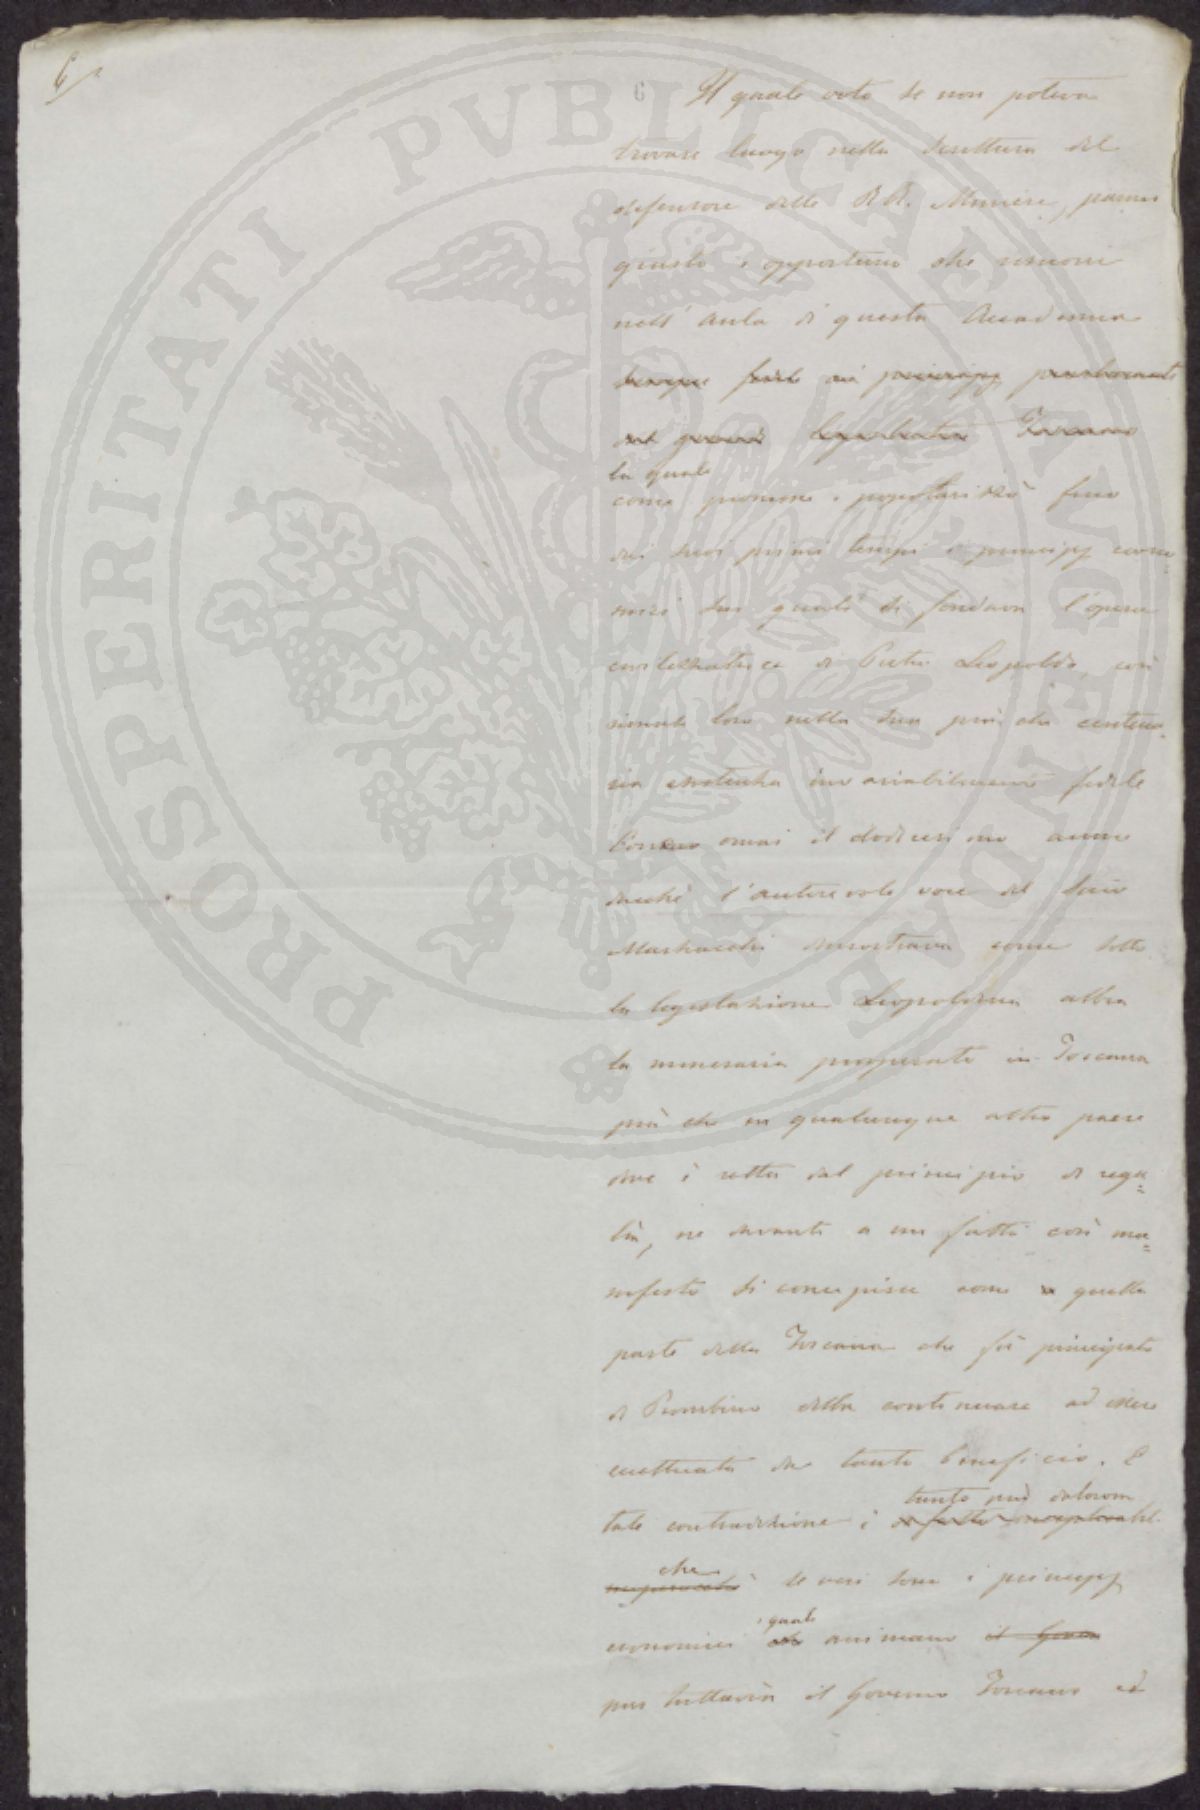 6
6
Il quale voto se non poteva
trovare luogo nella scrittura del
difensore delle RR. Miniere, parmi
giusto e opportuno che risuoni
nell' aula di questa Accademia
sempre fida ai principj
del gran Legislatore Toscano
la quale
come promosse e popolarizzò fino
dai suoi primi tempi i principj econo
mici sui quali si fondava l'opera
civilizzatrice di Pietro Leopoldo, così
rimase loro nella sua più che centena
ria esistenza invariabilmente fedele
omai il dodicesimo anno
dacchè l'autorevole voce del Socio
mostrava come sotto
la legislazione Leopoldina abbia
la mineraria prosperato in Toscana
più che in qualunque altro paese
dove è retta dal principio di rega=
lìa, ne davanti a un fatto così ma=
nifesto si concepisce come quella
parte della Toscana che fù principato
di Piombino debba continuare ad essere
eccettuata da tanto beneficio. E
tanto più dolorosa
tale contradizione è di fatto inesplicabil
che
se veri sono i principj
i quali
economici che animano il Gover
pur tuttavia il Governo Toscano ed
PROSPERITATI PVBLICAE AVGENDAE